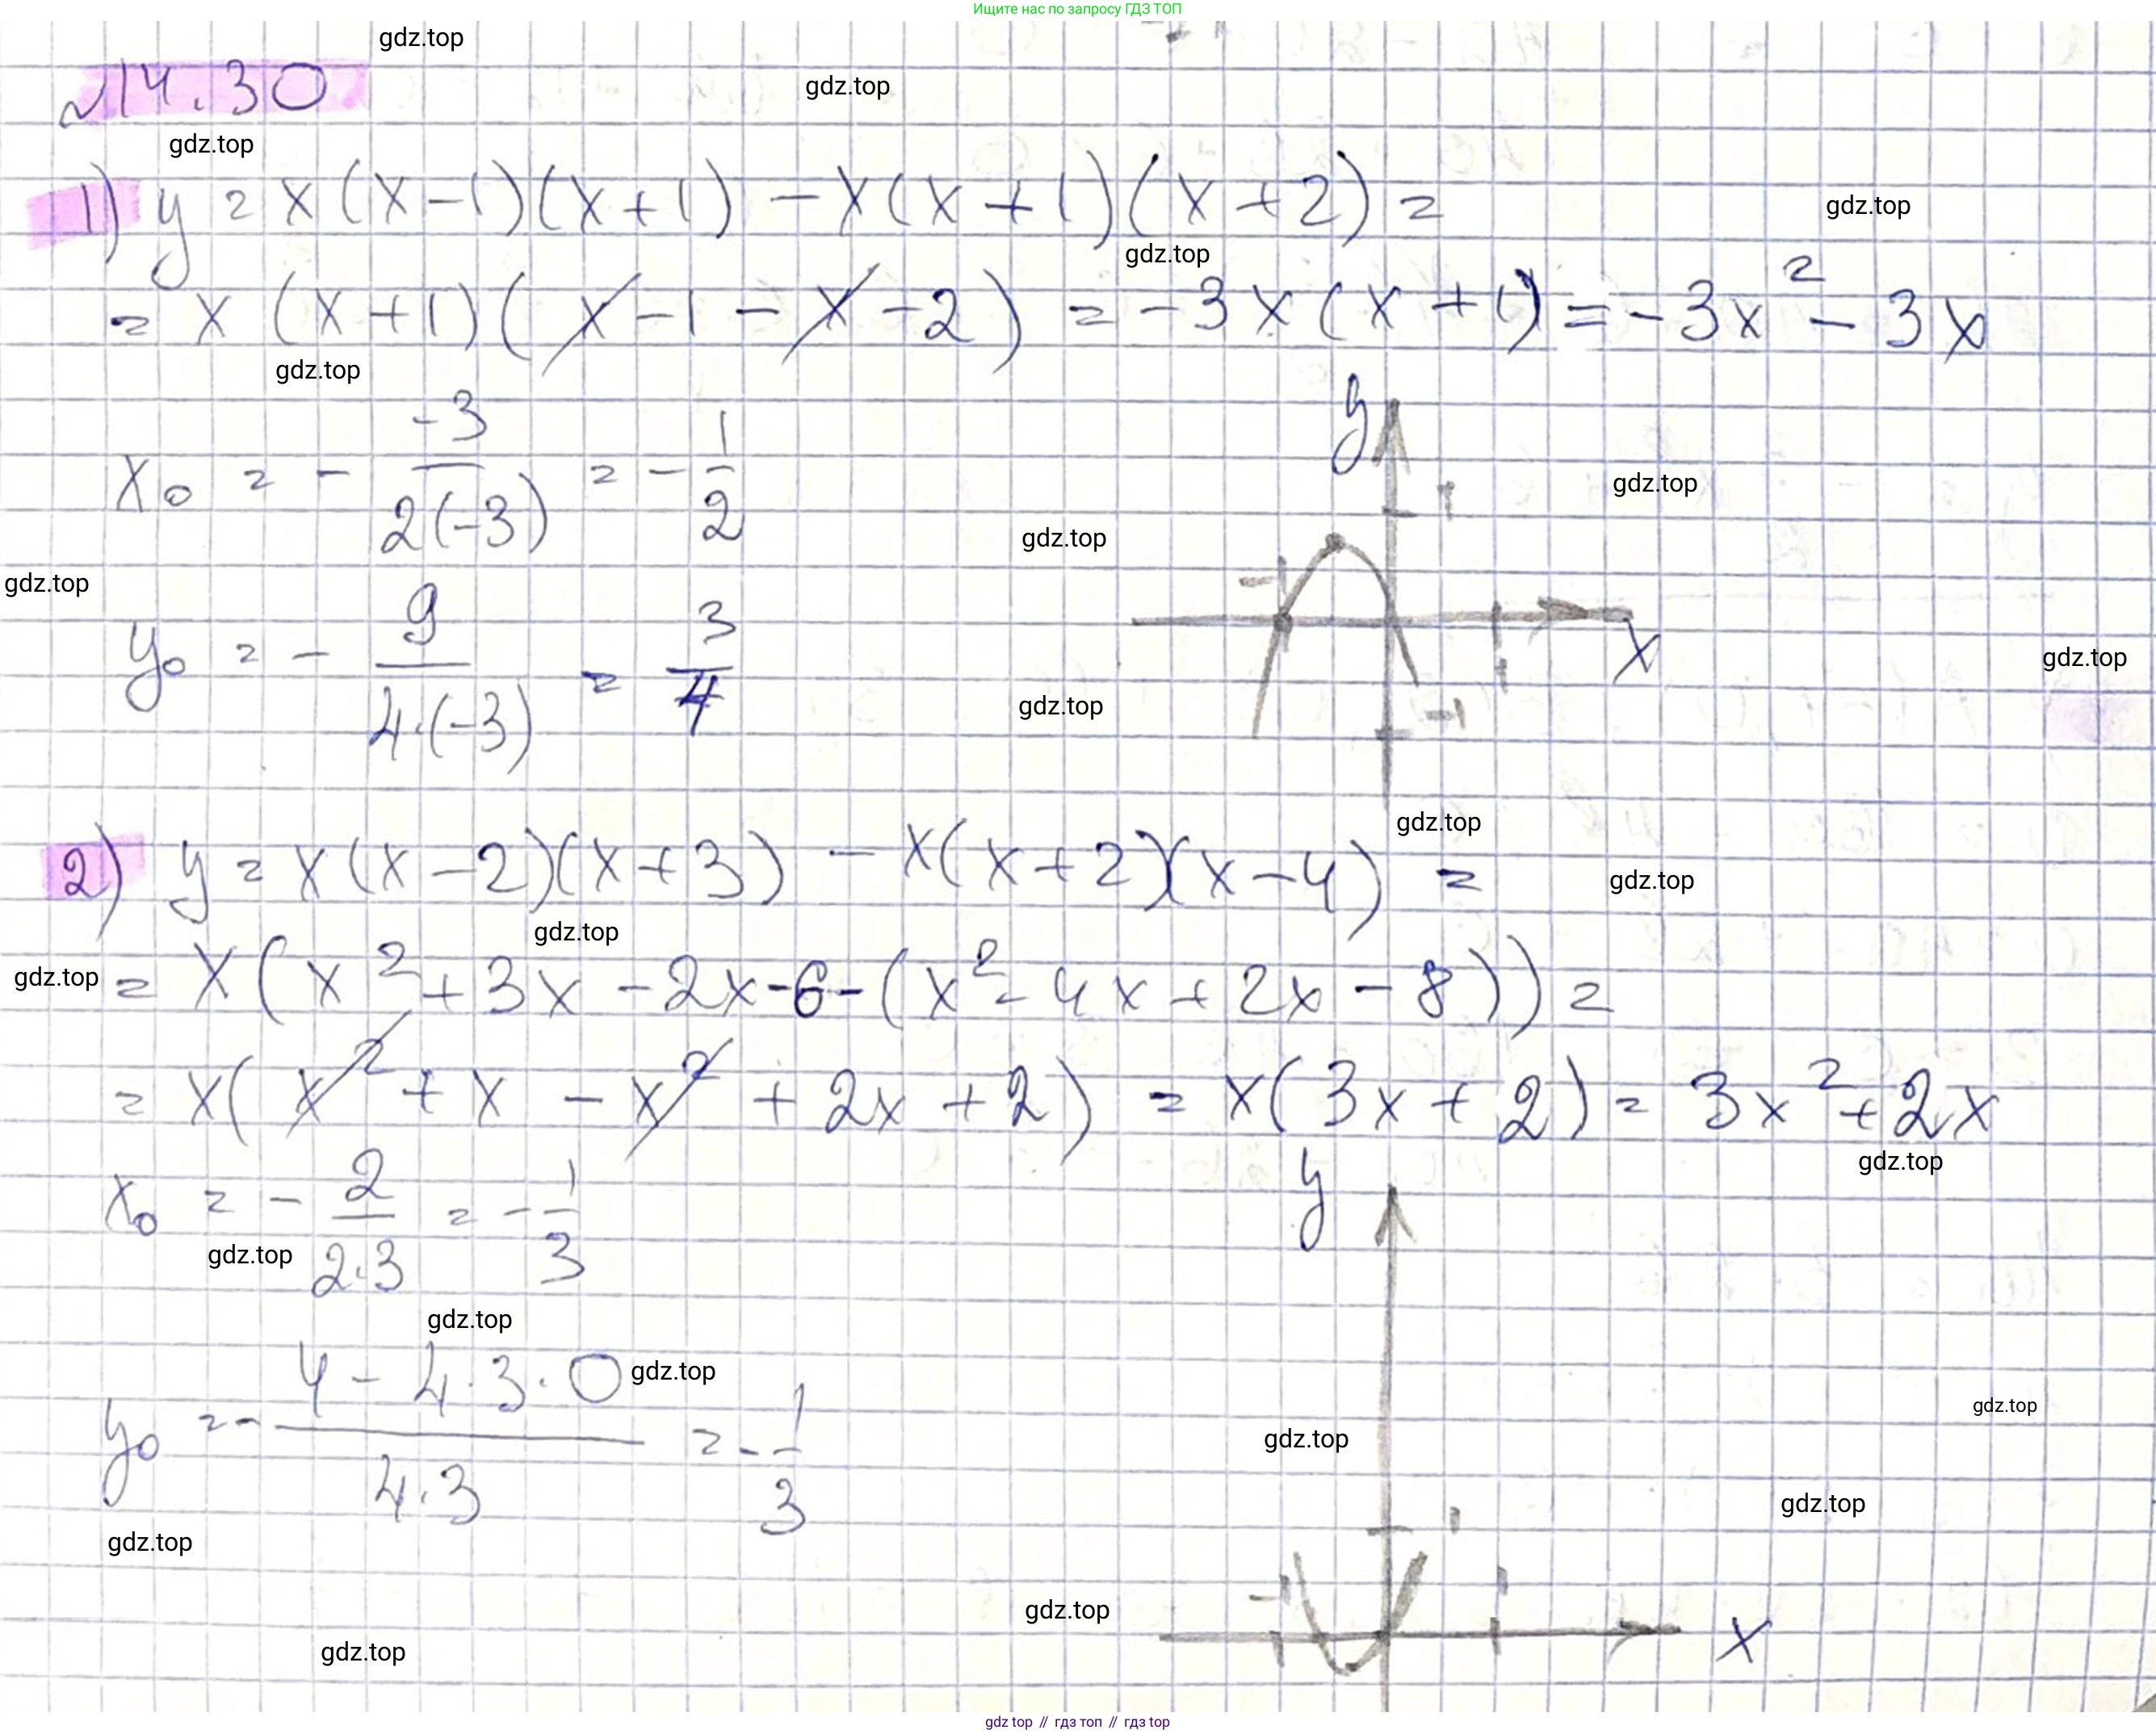 Ищите нас по запросу ГДЗ ТОП
gdz.top
№14.30
gdz.top
gdz.top
1) y = x(x-1)(x+1) - x(x+1)(x+2) =
gdz.top
gdz.top
= x(x+1)(x-1-x-2) = -3x(x+1) = -3x² - 3x
gdz.top
x₀ = - -3/2(-3) = - 1/2
y
1
gdz.top
gdz.top
gdz.top
-1
y₀ = - 9/4·(-3) = 3/4
1
x
gdz.top
gdz.top
-1
gdz.top
2) y = x(x-2)(x+3) - x(x+2)(x-4) =
gdz.top
gdz.top
gdz.top
= x(x²+3x-2x-6-(x²-4x+2x-8)) =
= x(x²+x-x²+2x+2) = x(3x+2) = 3x²+2x
gdz.top
x₀ = - 2/2·3 = - 1/3
y
gdz.top
gdz.top
y₀ = - 4-4·3·0/4·3 = - 1/3
gdz.top
gdz.top
gdz.top
gdz.top
1
gdz.top
-1
1
gdz.top
x
gdz.top
gdz top // гдз топ // гдз top